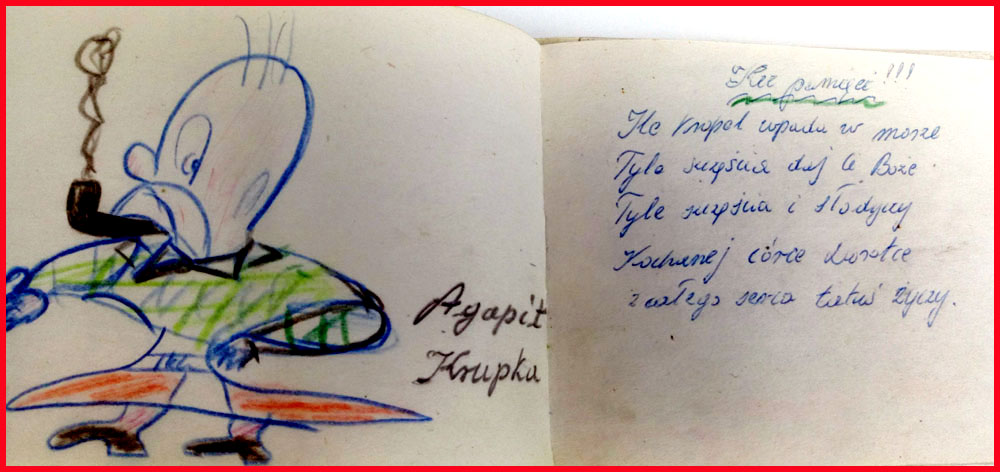 Agapit
Krupka
Ku pamięci!!!
Ile kropel wpada w morze
Tyle szczęścia daj Ci Boże
Tyle szczęścia i słodyczy
Kochanej córce
z całego serca tatuś życzy.